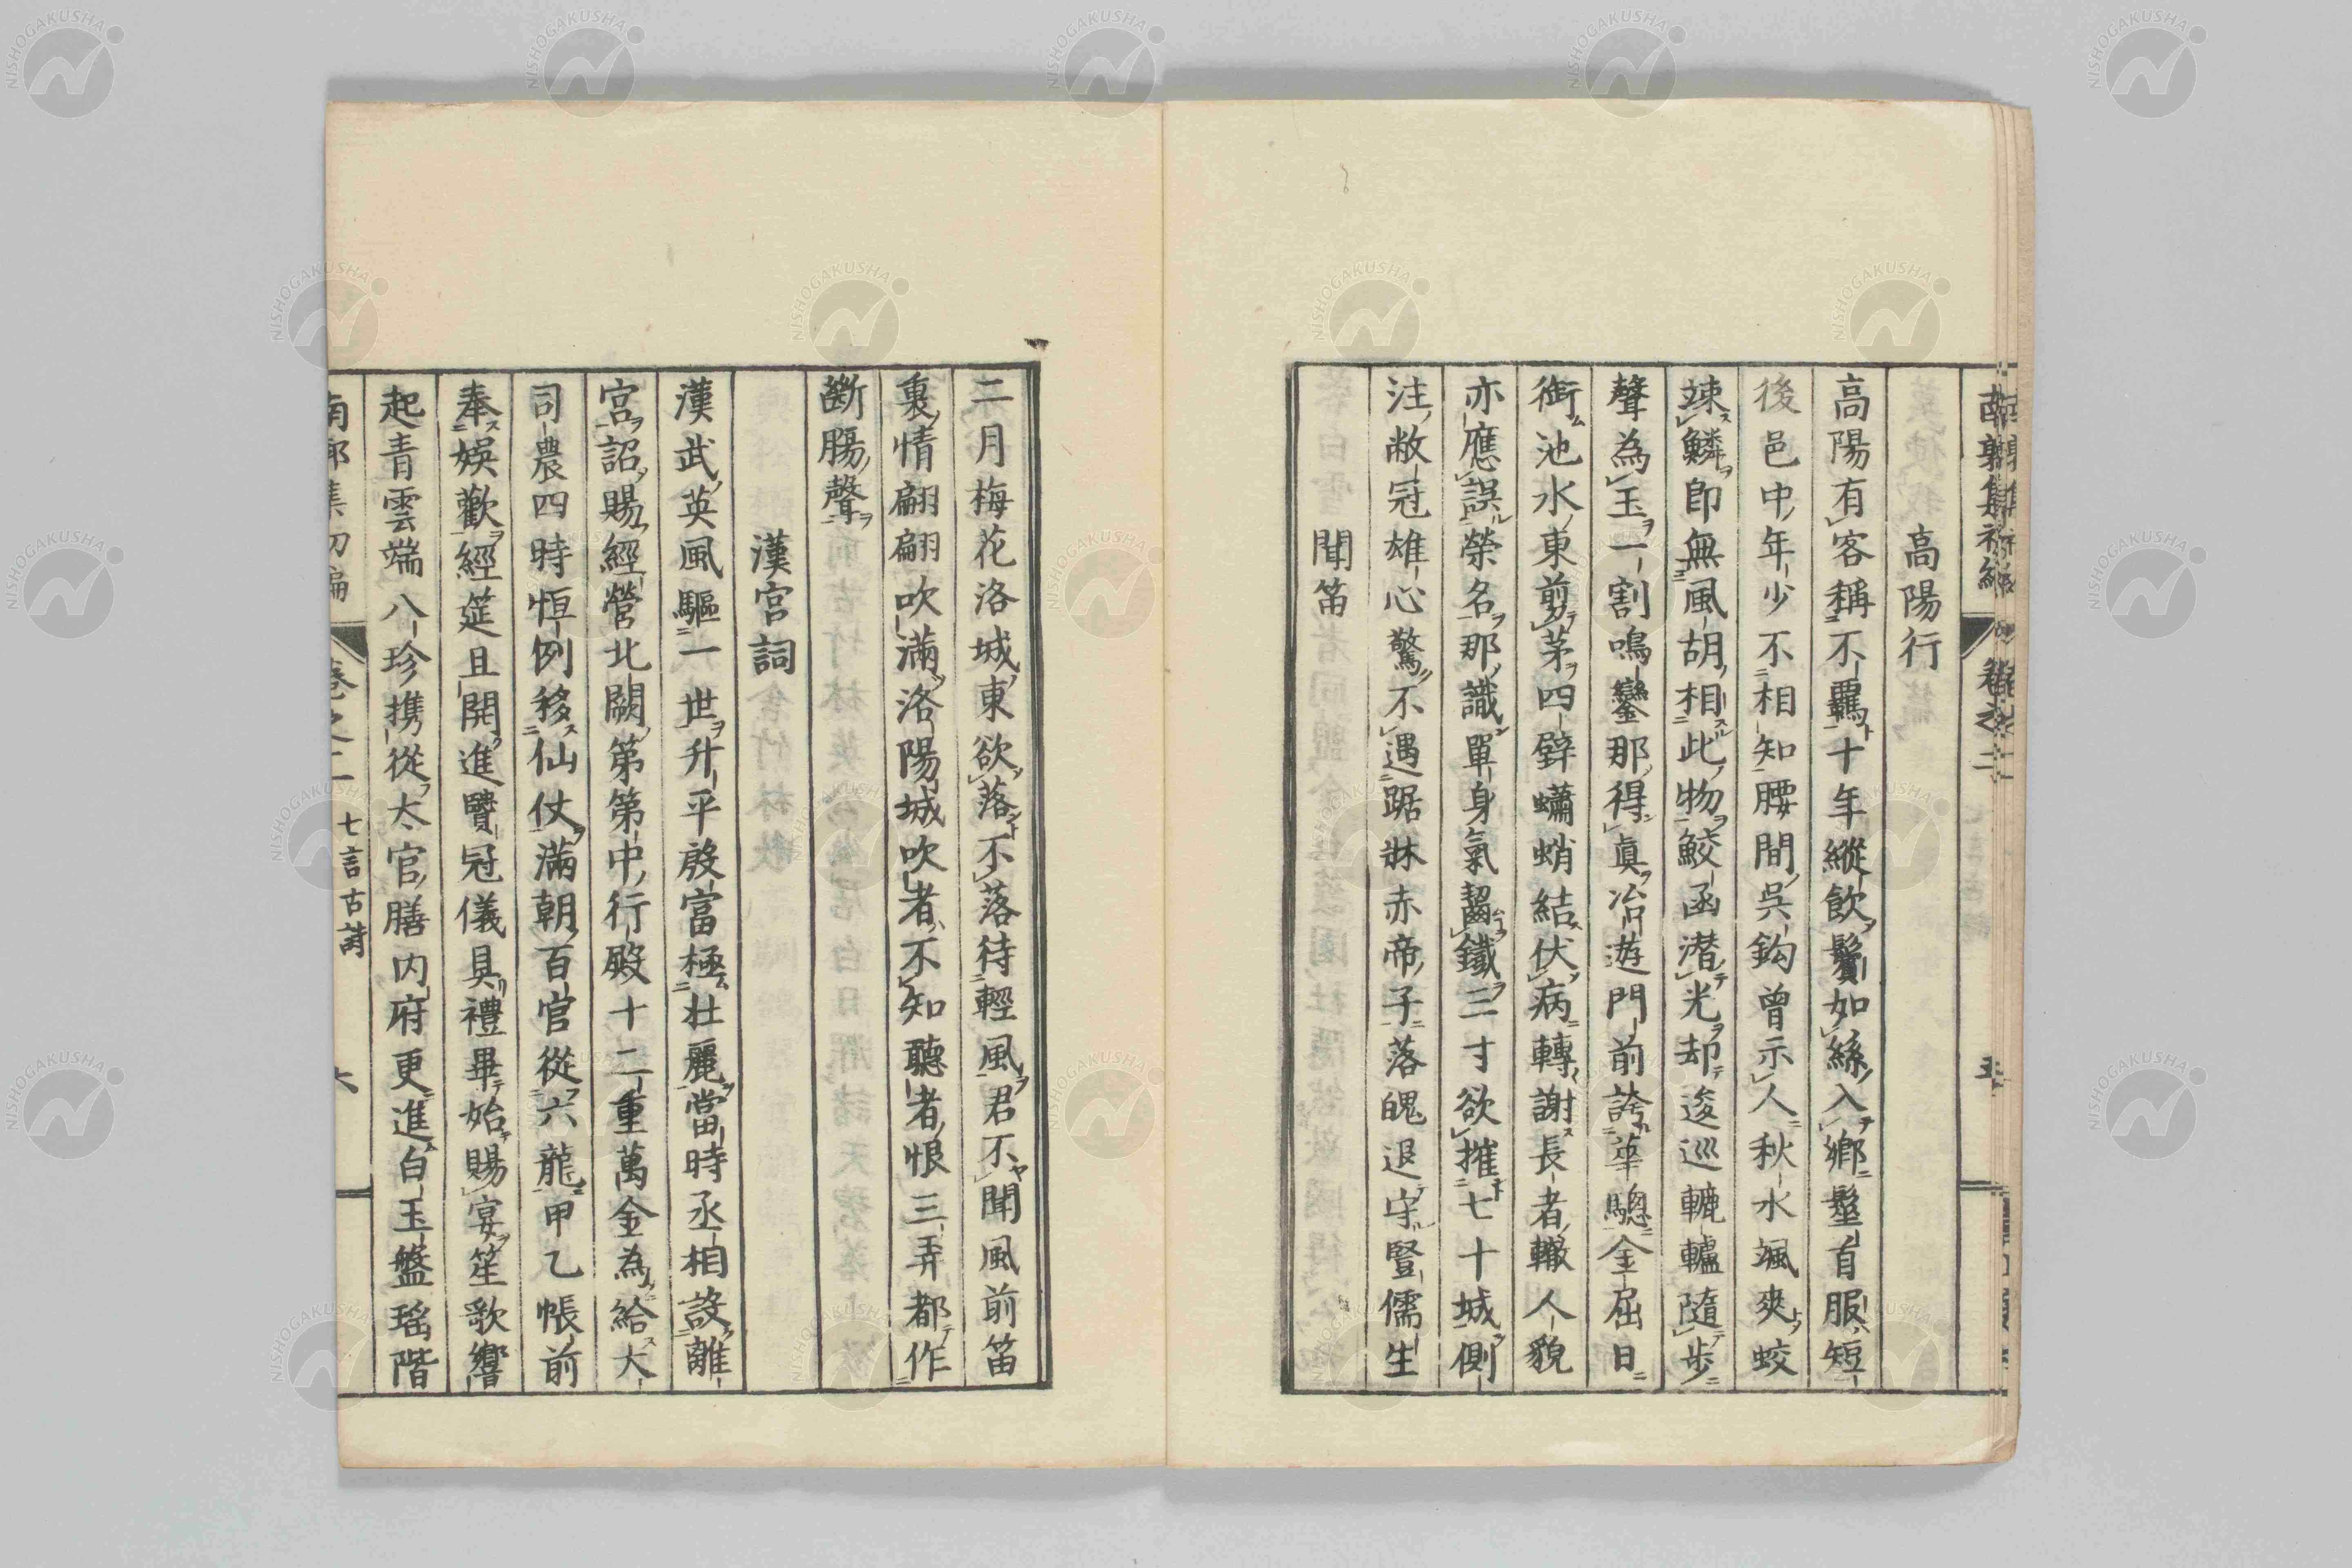 高陽行
高陽有客稱不羈十年縱飲鬢如絲入鄉髽首服短
後邑中年少不相知腰間吳鈎曾示人秋水颯爽蛟
竦鱗即無風胡相此物鮫函潜光却逡巡轆轤隨歩
聲為玉一割鳴鑾那得真冶遊門前誇華驄金屈日
銜池水東剪茅四壁蠨蛸結伏病轉謝長者轍人貌
亦應誤榮名那識單身氣齧鐵三寸欲摧七十城側
注敝冠雄心驚不遇踞牀赤帝子落魄退守豎儒生
聞笛
二月梅花洛城東欲落不落待輕風君不聞風前笛
裏情翩翩吹滿洛陽城吹者不知聽者恨三弄都作
斷腸聲
漢宮詞
漢武英風驅一世升平殷富極壯麗當時丞相設離
宮詔賜經營北闕第第中行殿十二重萬金為給大
司農四時恒例移仙仗滿朝百官從六龍甲乙帳前
奉娛歡經筵且開進賢冠儀具禮畢始賜宴笙歌響
起青雲端八珍携從太官膳內府更進白玉盤瑤階
南郭集初編 卷之二 七言古詩 六
NISHOGAKUSHA